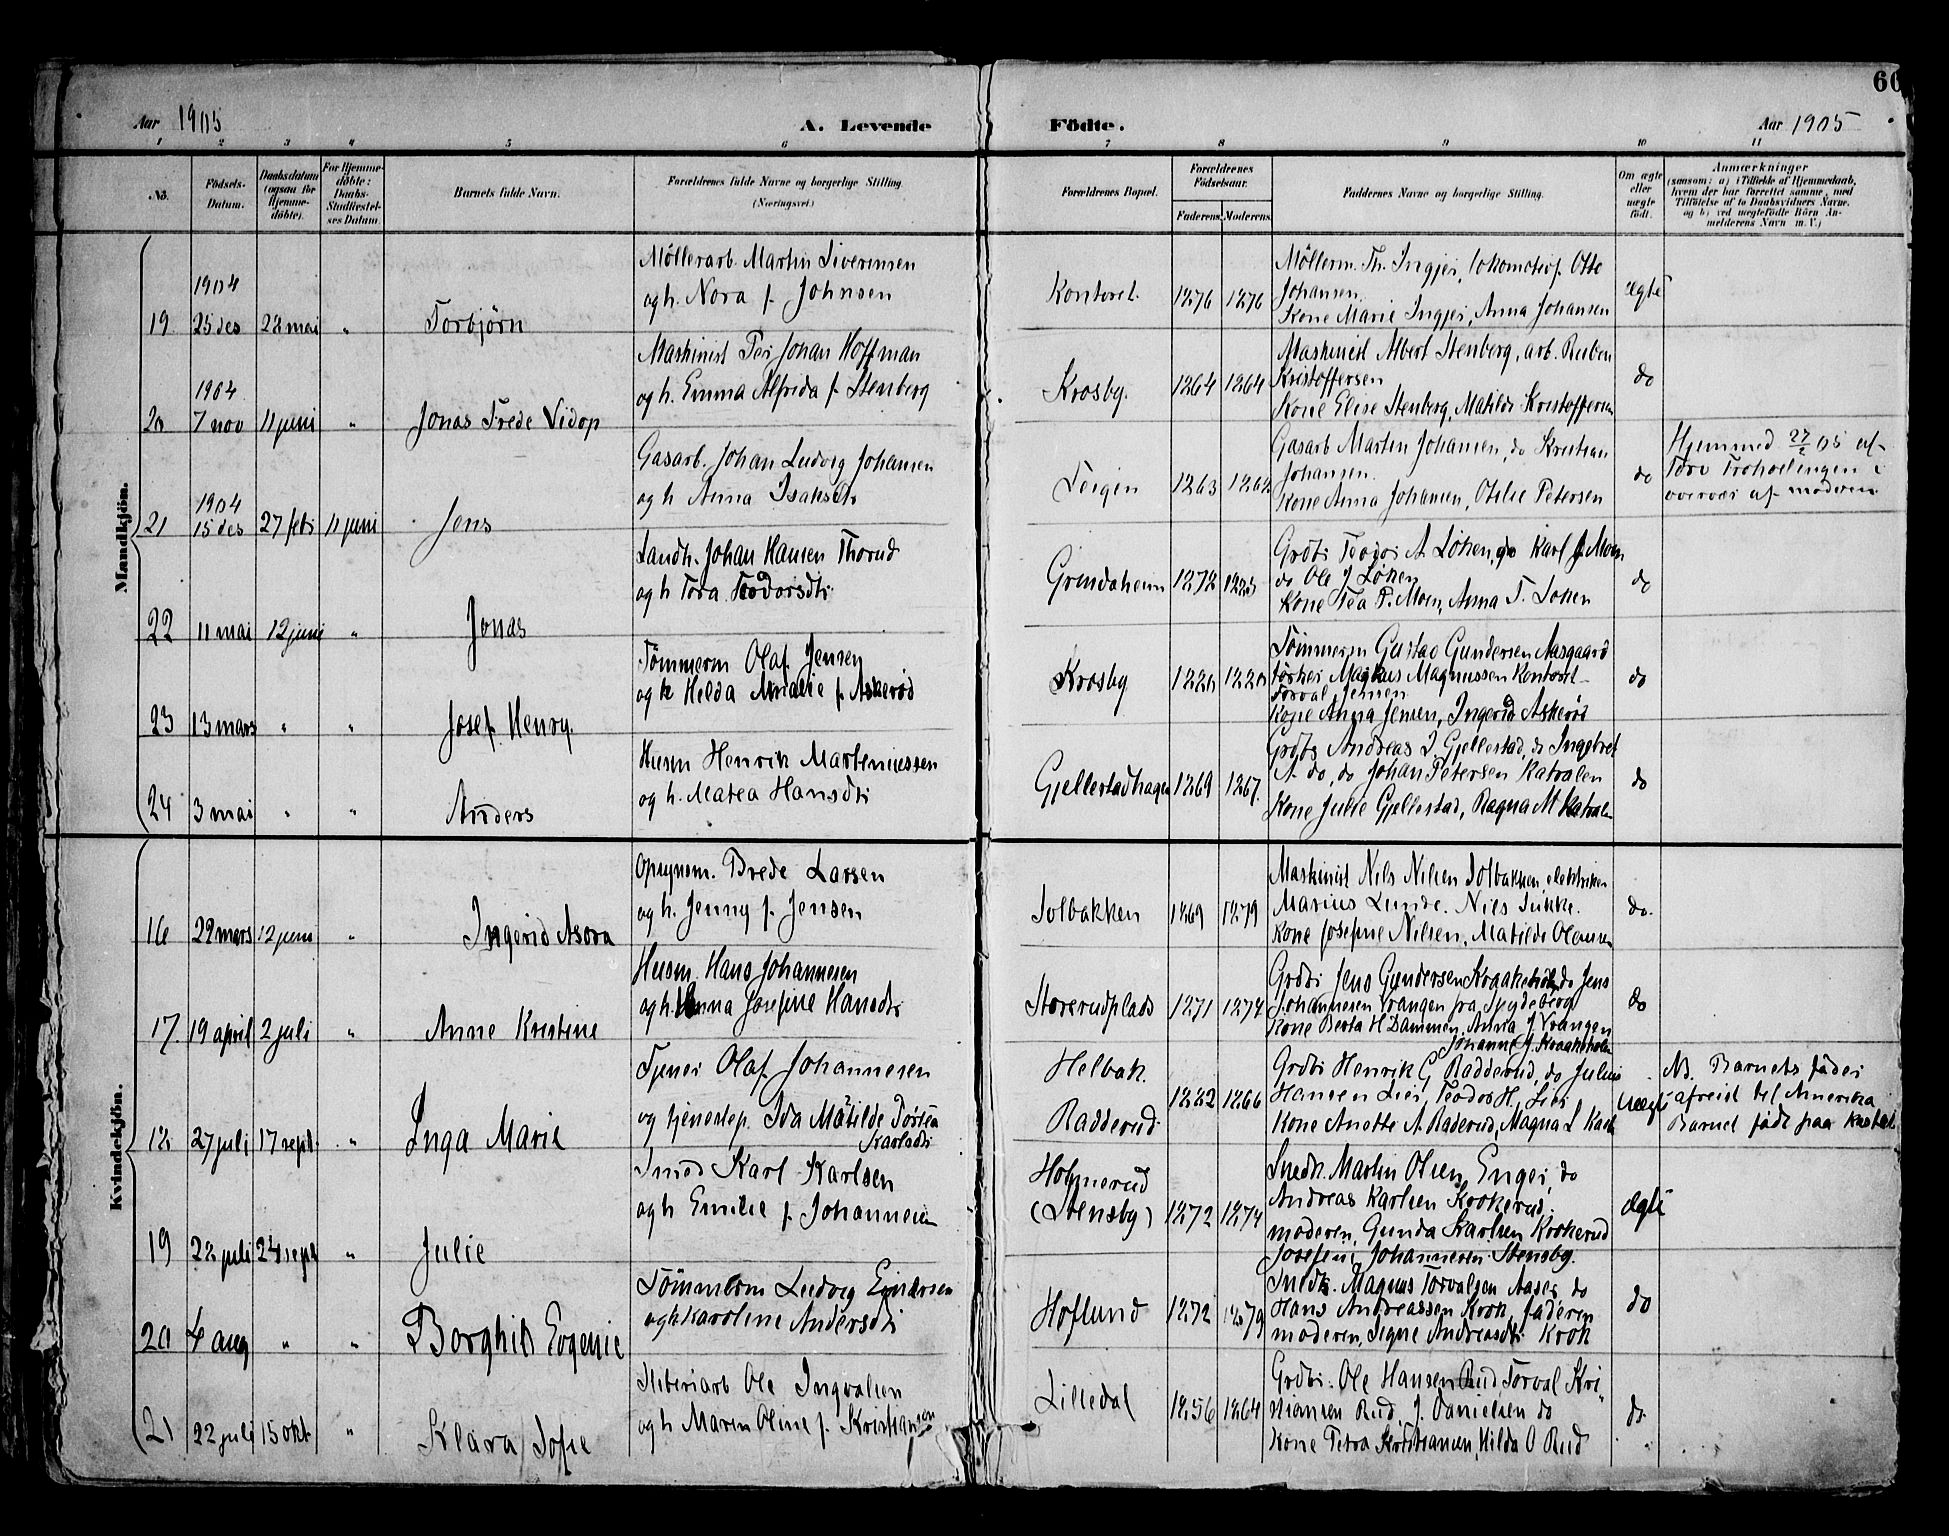 60
Aar 1905
A. Levende
Födte.
Aar 1905
1 2 3 4 5 6 7 8 9 10 11
No.
Födsels-
Datum.
Daabsdatum
(ogsaa for
Hjemme-
döbte).
For Hjemme-
döbte:
Daabs-
Stadfæstel-
ses Datum.
Barnets fulde Navn.
Forældrenes fulde Navne og borgerlige Stilling
(Næringsvei.)
Forældrenes Bopæl.
Forældrenes
Födselsaar.
Faderens Moderens
Faddernes Navne og borgerlige Stilling.
Om ægte
eller
uægte
født.
Anmærkninger
(saasom: a) i Tilfælde af Hjemmedaab,
hvem der har forrettet samme, med
Tilföielse af to Daabsvidners Navne.
og b) ved uægtefödte Börn An-
melderens Navn m. V.)
Mandkjön.
19
1904
25 des
28 mai
"
Torbjørn
Møllerarb. Martin Siverinsen
og h. Nora f. Johnsen
Kontoret.
1876
1876
Møllerm. Th. Ingjer, lokomotivf. Otto
Johansen.
Kone Marie Ingjer, Anna Johansen
ægte
20
1904
7 nov
11 juni
"
Jonas Frede Vidop
Maskinist Per Johan Hoffman
og h. Emma Alfrida f. Stenberg
Krosby.
1864
1864
Maskinist Albert Stenberg, arb. Ruben
Kristoffersen
Kone Elise Stenberg, Matilde Kristoffersen
do
21
1904
15 des
27 feb
11 juni
Jens
Gasarb. Johan Ludvig Johansen
og h Anna Isaksdtr
Teigen
1863
1862
Gasarb Martin Johansen, do Kristian
Johansen.
Kone Anna Johansen, Otilie Petersen
do
Hjemmed 27/2 05 af
overvær af moderen
22
11 mai
12 juni
"
Jonas
Landh. Johan Hansen Thorud
og h Tora Teodorsdtr.
Grindaheim
1872
Grdbr Teodor A. Løken, do Karl J. Moen
do Ole J Løken
Kone Tea P. Moen, Anna T. Løken
do
23
13 mars
"
"
Josef Henry.
Tømmerm Olaf Jensen
og h Helda Amalie f. Askerød
Krosby
1880
1880
Tømmerm Gustav Gundersen Aasgaard
Markus Magnussen Kontoret
Torval Jensen
Kone Anna Jensen, Ingerid Askerød
do
24
3 mai
"
"
Anders
Husm Henrik Marteniussen
og h. Matea Hansdtr
Gjellestadhagen
1869
1867.
Grdbr Andreas I. Gjellestad, do Ingebret
A. do, do Johan Petersen Katralen
Kone Julie Gjellestad, Ragna M Katralen
do
Kvindekjön.
16
28 mars
12 juni
"
Ingerid Asora
Opsynsm. Brede Larsen
og h. Jenny f. Jensen
Solbakken
1869
1879
Maskinist Nils Nilsen Solbakken, elektriker
Marius Lunde. Nils Sukke.
Kone Josefine Nilsen, Matilde Olausen
do.
17.
19 april
2 juli
"
Anne Kristine
Husm. Hans Johannesen
og h. Anna Josefine Hansdtr
Storerudplads
1871
1874
Grdbr Jens Gundersen Kraakehole do Jens
Johannesen Vrangen fra Spydeberg
Kone Berta H Dammen, Anna J. Vrangen
Johanne J. Kraakehole
do
18
27 juli
17 sept.
"
Inga Marie
Tjener Olaf Johannesen
og tjenestep. Ida Matilde Dortea
Karlsdtr
Helbak.
Radderud.
1882
1866
Grdbr Henrik G Radderud, do Julius
Hansen Lier, Teodor H. Lier
Kone Anette A. Raderud, Magna L Kash
uægte
NB. Barnets fader
afreist til Amerika
Barnet født paa
19
28 juli
24 sept
"
Julie
Smed Karl Karlsen
og h Emilie f. Johannesen
Holmerud
(Stensby)
1872
1874
Snedk. Martin Olsen, Enger, do
Andreas Karlsen Krokerud.
moderen, Gunda Karlsen Krokerud
Josefine Johannesen Stensby.
ægte
20
4 aug
"
"
Borghild Eogenie
Tømmerm Ludvig Einarsen
og h Karoline Andersdtr
Hoflund
1872
1879
Snedk. Magnus Torvalsen Aaser do
Hans Andreassen Krok, faderen
moderen, Signe Andreasdtr Krok
do
21
22 juli
15 okt
"
Klara Sofie
Sliberiarb Ole Ingvalsen
og h Maren Oline f. Kristiansen
Lilledal
1856
1864
Grdbr. Ole Hansen Rud, Torval Kri-
stiansen Rud, J. Danielsen do
Kone Petra Kristiansen, Hilda O Rud
do.